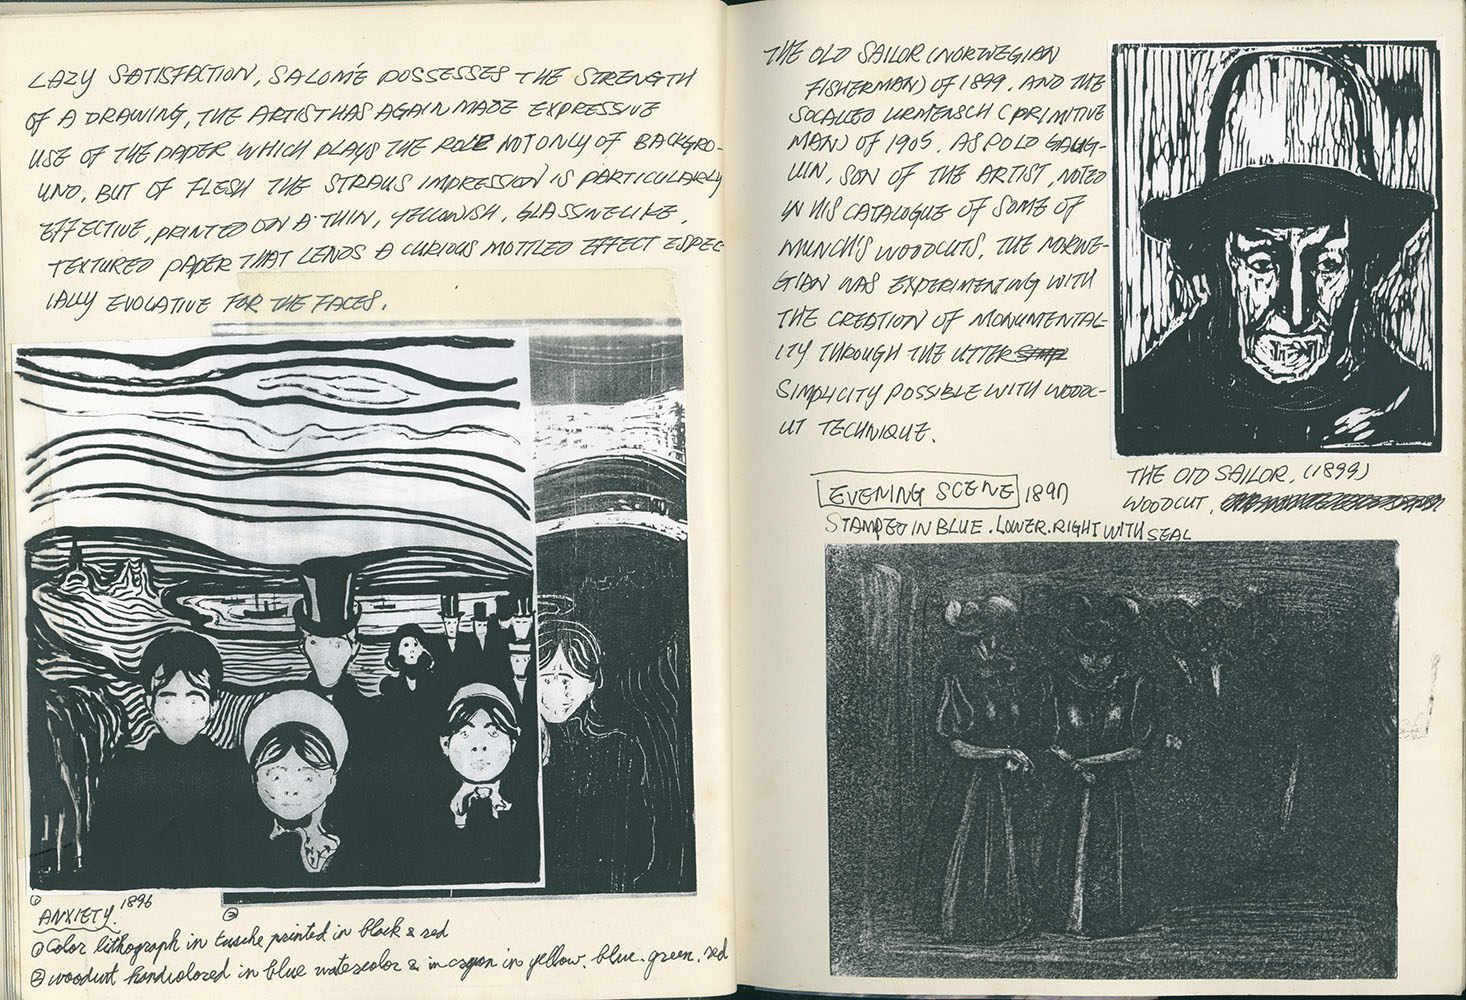 LAZY SATISFACTION, SALOMÉ POSSESSES THE STRENGTH
OF A DRAWING, THE ARTIST HAS AGAIN MADE EXPRESSIVE
USE OF THE PAPER WHICH PLAYS THE ROLE NOT ONLY OF BACKGRO-
UND, BUT OF FLESH THE STRAUS IMPRESSION IS PARTICULARLY
EFFECTIVE, PRINTED ON A THIN, YELLOWISH, GLASSINELIKE,
TEXTURED PAPER THAT LENDS A CURIOUS MOTTLED EFFECT ESPEC
IALLY EVOCATIVE FOR THE FACES.
①
ANXIETY. 1896
②
① Color lithograph in tusche printed in black & red
② woodcut handcolored in blue watercolor & in crayon in yellow. blue. green. red
THE OLD SAILOR (NORWEGIAN
FISHERMAN) OF 1899, AND THE
SOCALLED URMENSCH (PRIMITIVE
MAN) OF 1905. AS POLO GAUG-
UIN, SON OF THE ARTIST, NOTED
IN HIS CATALOGUE OF SOME OF
MUNCH'S WOODCUTS, THE NORWE-
GIAN WAS EXPERIMENTING WITH
THE CREATION OF MONUMENTAL-
ITY THROUGH THE UTTER
SIMPLICITY POSSIBLE WITH WOODC-
UT TECHNIQUE.
THE OLD SAILOR, (1899)
WOODCUT,
EVENING SCENE 1897
STAMPED IN BLUE. LOWER. RIGHT WITH SEAL